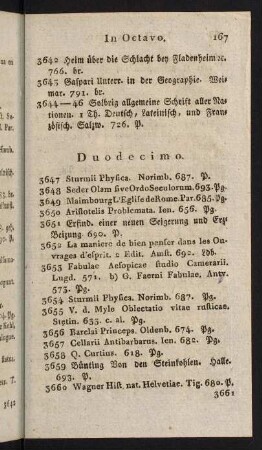 In Octavo. 167
3642 Heim über die Schlacht bey Fladenheim ꝛc.
766. br.
3643 Gaspari Unterr. in der Geographie. Wei-
mar. 791. br.
3644—46 Solbrig allgemeine Schrift aller Na-
tionen. 1 Th. Deutsch, lateinisch, und Fran-
zösisch. Salzw. 726. P.
Duodecimo.
3647 Sturmii Physica. Norimb. 687. P.
3648 Seder Olam sive Ordo Seculorum. 693. Pg.
3649 Maimbourg L'Eglise de Rome. Par. 685. Pg.
3650 Aristotelis Problemata. Ien. 656. Pg.
3651 Erfind. einer neuen Seigerung und Erz-
Beizung 690. P.
3652 La maniere de bien penser dans les Ou-
vrages d'esprit. 2 Edit. Amst. 692. Ldb.
3653 Fabulae Aesopicae studio Camerarii.
Lugd. 571. b) G. Faerni Fabulae. Antv.
573. Pg.
3654 Sturmii Physica. Norimb. 687. Pg.
3655 V. d. Mylo Oblectatio vitae rusticae.
Stetin. 633. c. al. Pg.
3656 Barclai Princeps. Oldenb. 674. Pg.
3657 Cellarii Antibarbarus. Ien. 682. Pg.
3658 Q. Curtius. 618. Pg.
3659 Bünting Von den Steinkohlen. Halle.
693. P.
3660 Wagner Hist. nat. Helvetiae. Tig. 680. P.
3661